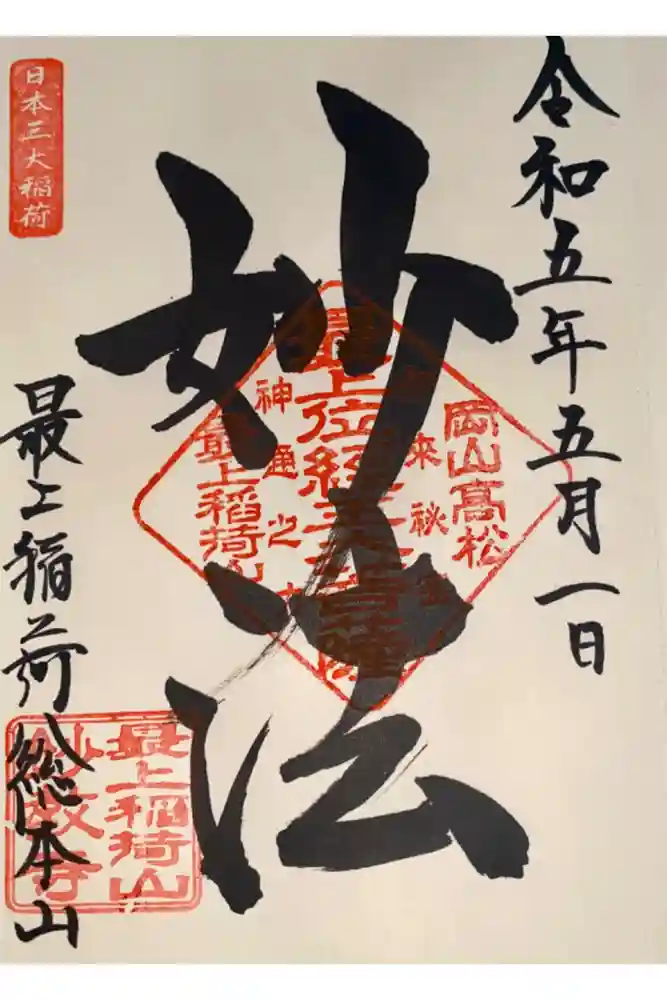 令和五年五月一日
岡山高松
最上位経王大菩薩
神通之
最上稲荷山
妙法
日本三大稲荷
最上稲荷総本山
最上稲荷山
妙教寺